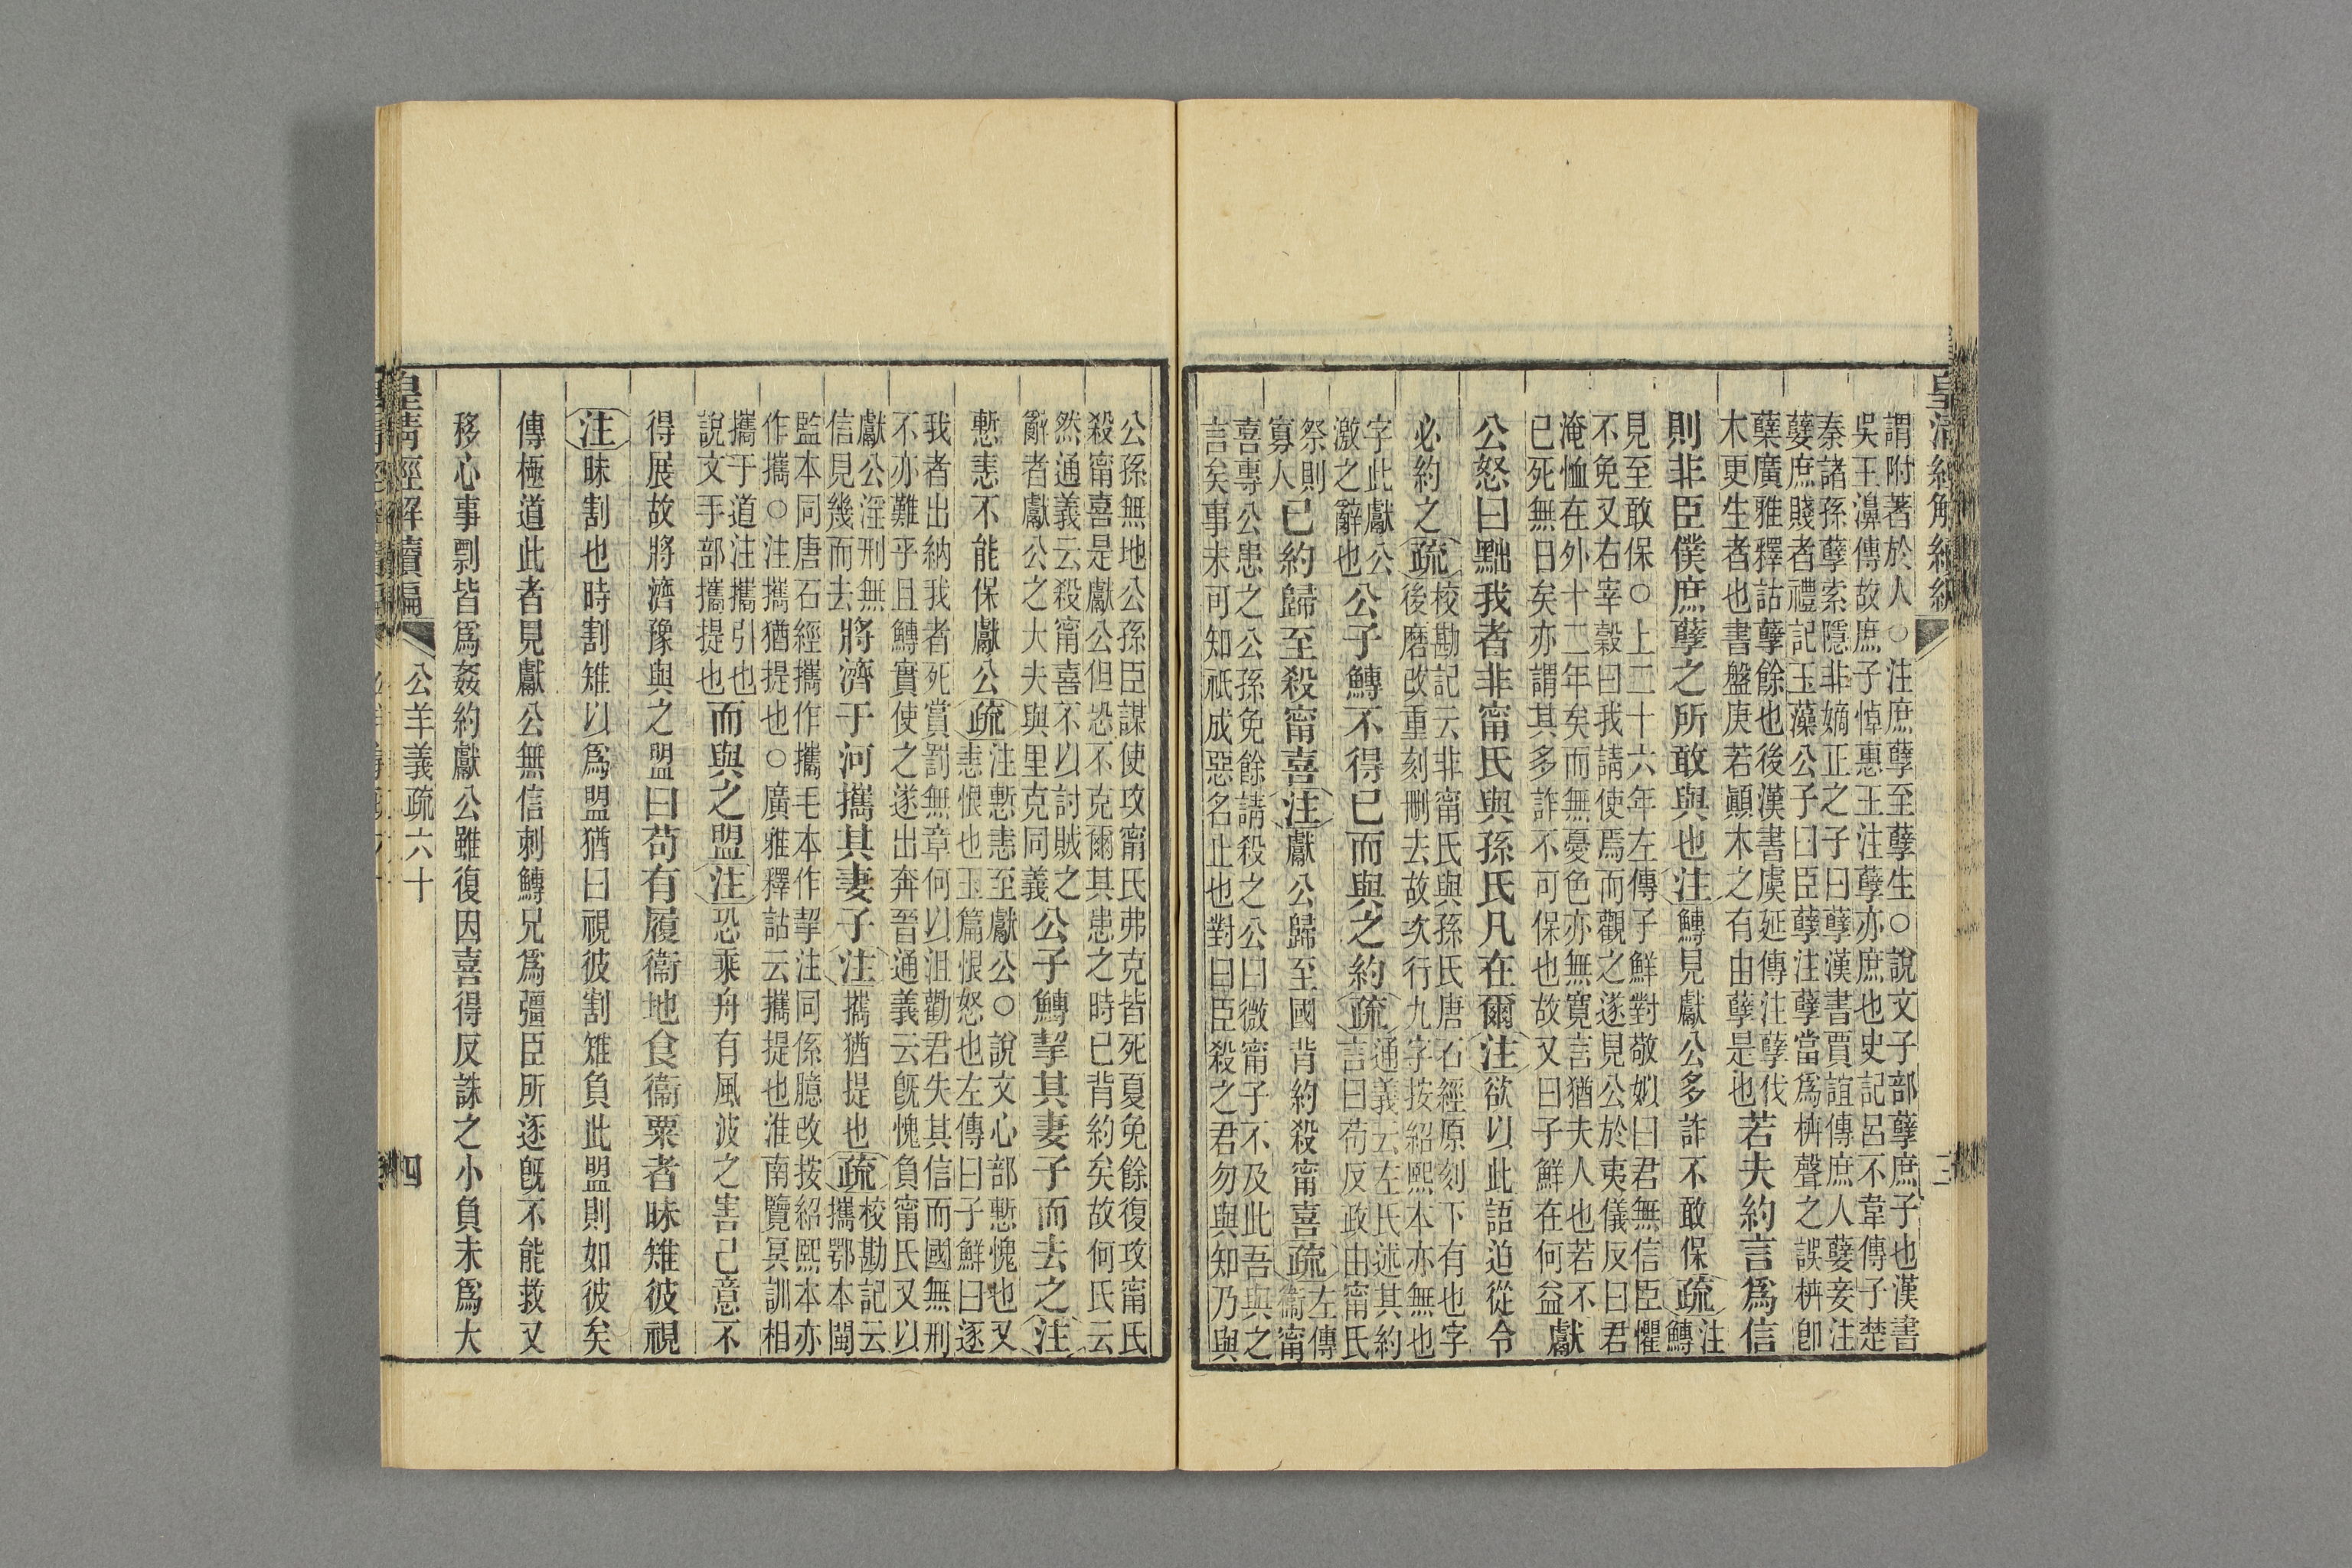 皇清經解續編
三
謂附著於人○注庶孽至孽生○說文子部孽庶子也漢書
吳王濞傳故庶子悼惠王注孽亦庶也史記呂不韋傳子楚
秦諸孫孽索隱非嫡正之子曰孽漢書賈誼傳庶人孽妾注
孽庶賤者禮記玉藻公子曰臣孽注孽當爲枿聲之誤枿卽
櫱廣雅釋詁孽餘也後漢書虞延傳注孽伐
木更生者也書盤庚若顚木之有由孽是也若夫約言爲信
則非臣僕庶孽之所敢與也注鱄見獻公多詐不敢保疏注鱄
見至敢保○上二十六年左傳子鮮對敬姒曰君無信臣懼
不免又右宰穀曰我請使焉而觀之遂見公於夷儀反曰君
淹恤在外十二年矣而無憂色亦無寬言猶夫人也若不
已死無日矣亦謂其多詐不可保也故又曰子鮮在何益獻
公怒曰黜我者非甯氏與孫氏凡在爾注欲以此語迫從令
必約之疏校勘記云非甯氏與孫氏唐石經原刻下有也字
後磨改重刻刪去故次行九字按紹熙本亦無也
字此獻公
激之辭也公子鱄不得已而與之約疏通義云左氏述其約
言曰苟反政由甯氏
祭則
寡人已約歸至殺甯喜注獻公歸至國背約殺甯喜疏左傳
衞甯
喜專公患之公孫免餘請殺之公曰微甯子不及此吾與之
言矣事未可知祇成惡名止也對曰臣殺之君勿與知乃與
公孫無地公孫臣謀使攻甯氏弗克皆死夏免餘復攻甯氏
殺甯喜是獻公但恐不克爾其患之時已背約矣故何氏云
然通義云殺甯喜不以討賊之
辭者獻公之大夫與里克同義公子鱄挈其妻子而去之注
慙恚不能保獻公疏注慙恚至獻公○說文心部慙愧也又
恚恨也玉篇恨怒也左傳曰子鮮曰逐
我者出納我者死賞罰無章何以沮勸君失其信而國無刑
不亦難乎且鱄實使之遂出奔晉通義云旣愧負甯氏又以
獻公淫刑無
信見幾而去將濟于河攜其妻子注攜猶提也疏校勘記云
攜鄂本閩
監本同唐石經攜作攜毛本作挈注同係臆改按紹熙本亦
作攜○注攜猶提也○廣雅釋詁云攜提也淮南覽冥訓相
攜于道注攜引也
說文手部攜提也而與之盟注恐乘舟有風波之害己意不
得展故將濟豫與之盟曰苟有履衞地食衞粟者昧雉彼視
注昧割也時割雉以爲盟猶曰視彼割雉負此盟則如彼矣
傳極道此者見獻公無信刺鱄兄爲彊臣所逐旣不能救又
移心事剽皆爲姦約獻公雖復因喜得反誅之小負未爲大
皇清經解續編
公羊義疏六十
四